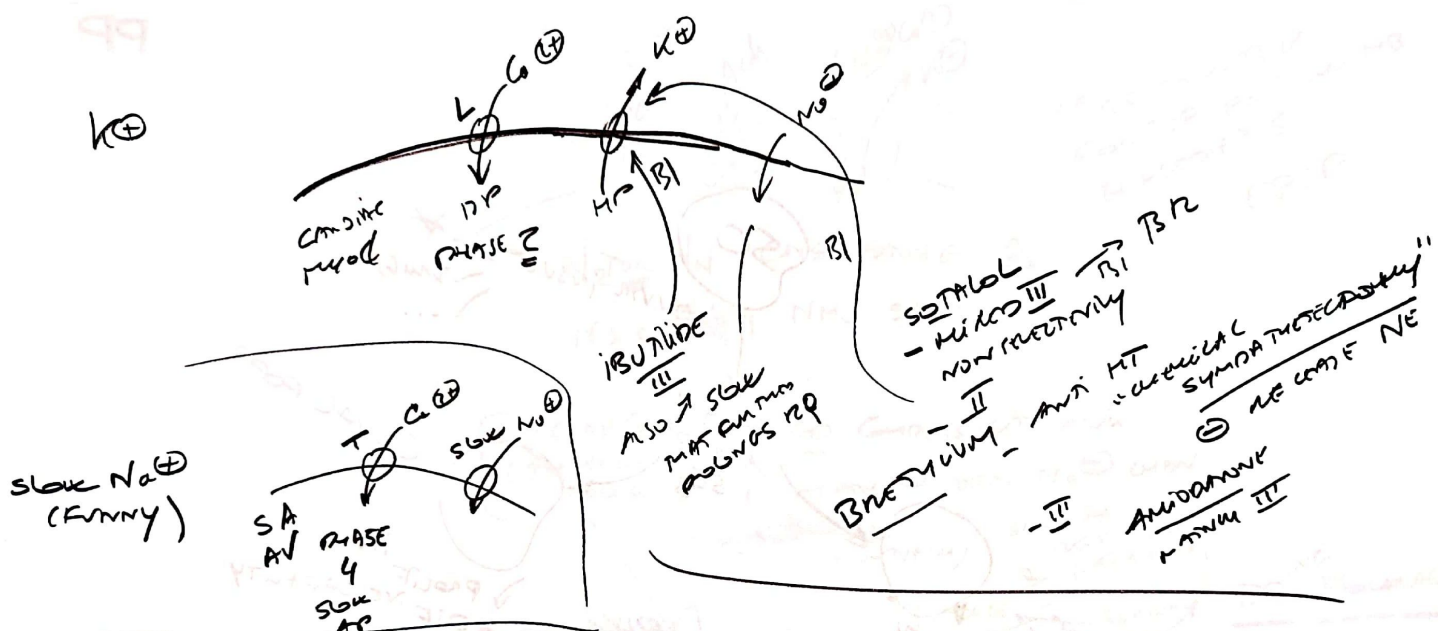 K⊕
L
Ca (2+)
K⊕
Na⊕
CARDIAC
DP
PHASE 2
HP
BI
BI
IBUTILIDE
III
ALSO ↗ SLOW
THAT FURTHER
PROLONGS RP
SOTALOL
- MIXED III → BR
BI
NONSELECTIVITY
- II
BRETYLIUM - ANTI HT
"CHEMICAL
SYMPATHETECTOMY"
⊖ RELEASE NE
- III
AMIODARONE
MAINLY III
SLOW Na⊕
(FUNNY)
T
Ca (2+)
SLOW Na⊕
SA
AV
PHASE
4
SLOW